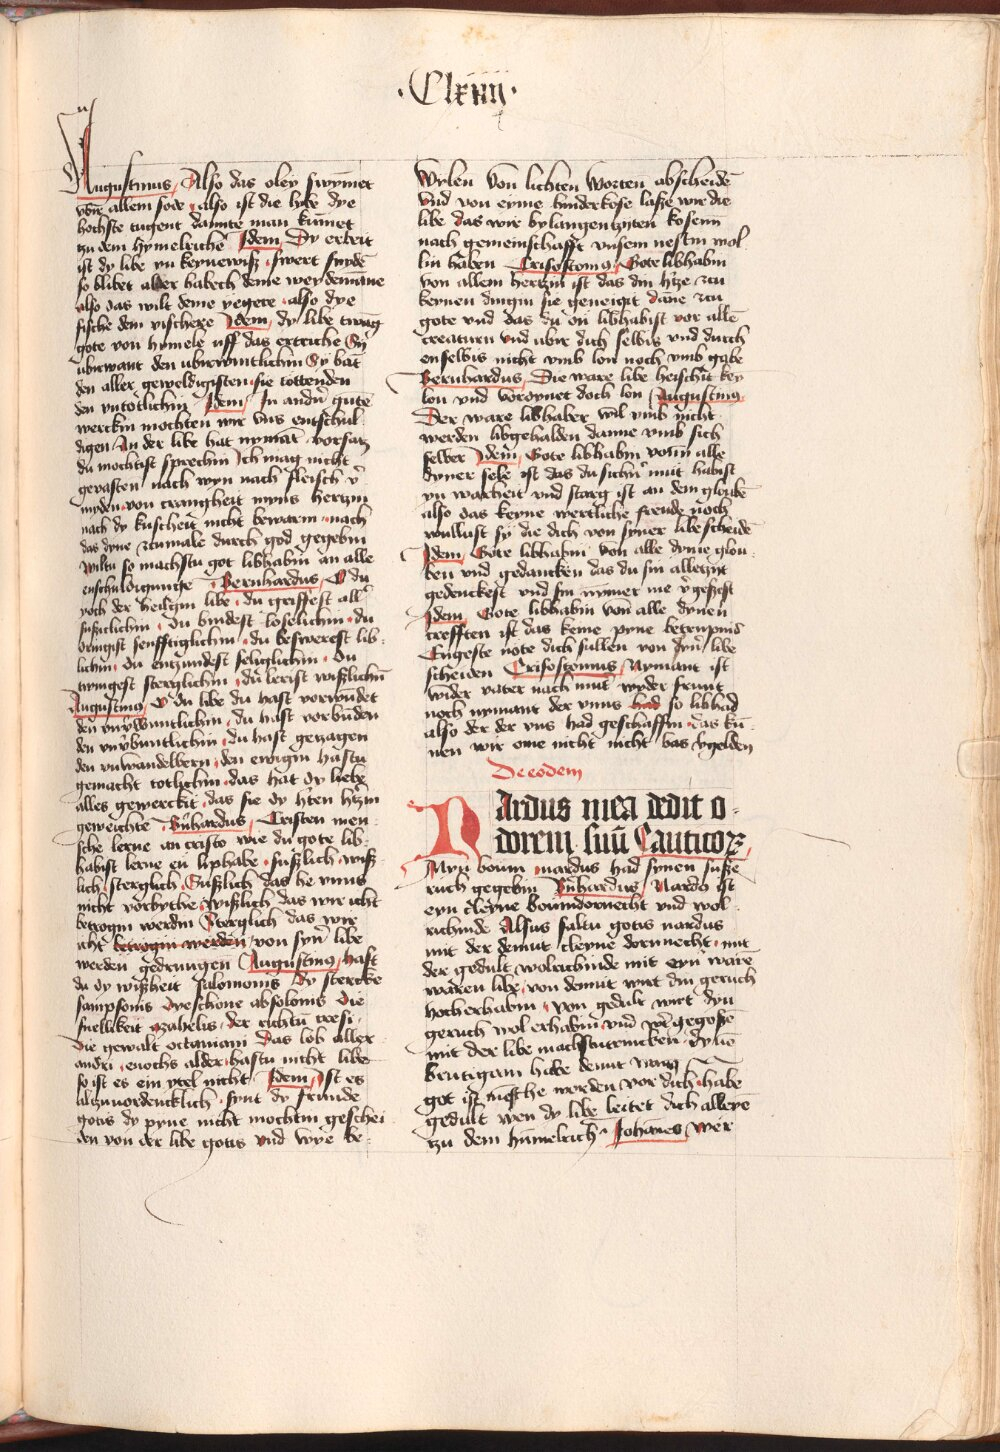 ·Clxiiii·
Augustinus Also das oley swymmet
obir allem sode also ist die libe dye
hochste tugent damite man kummet
zu dem hymelriche Idem Dy erbeit
ist dy libe yn keynewiß swert snyde
so blibet alder habech deme weydemanne
also das wilt deme yegere also dye
fische dem vischere Idem dy libe twang
gote von hymele uff das ertriche Sy
ubirwant den ubirwintlichin Sy bant
den aller geweldigisten sie tottenden
den untotlichin Idem In andern gute
werckin mochten wir uns entschul
digen An der libe hat nymant vorsatz
du mochtist sprechin Ich mag nicht
gevasten nach wyn nach fleisch v̄
myden von crangheit myns hertzin
nach dy kuscheit nicht bewarin nach
das dyne zcumale durch god gegebin
wiltu so machstu got libhabin an alle
enschuldigunge Bernhardus O du
yoch der heiligin libe du griffest all
sußiclichin Du bindest loselichin du
dringist senfftiglichin du beswerest lib
lichin Du entzundest seliglichin Du
twingest sterglichin du lerist wißlichin
Augustinus O du libe du hast vorwundet
den unvorwuntlichin du hast vorbunden
den unvorbuntlichin du hast gezagen
den unwandelbern den ewigin hastu
gemacht totlichin das hat dy liebe
alles gewerckit das sie dy herten hertzin
geweichte Bernhardus Cristen men
sche lerne an cristo wie du gote lib
habist lerne en liphabe sußlich wiß
lich sterglich Sußlich das he uns
nicht vorbythe wißlich das wir icht
betrogin werdin Sterglich das wir
icht betrogin werden von syner libe
werden gedrungen Augustinus hast
du dy wißheit salomonis Dy stercke
sampsonis dye schone absolonis Die
snellikeit azahelis der richtum cresi
Die gewalt octaviani Das lob aller
andri enochs alder hastu nicht libe
so ist es ein ytel nicht Idem Ist es
alzu unordencklich synt dy frunde
gotis dy pyne nicht mochtin geschei
den von der libe gotis und wye be
wylen von lichten worten abscheide
Und von eyme kinderkose laße wir die
libe das wir bylangen zyten kosenn
nach gemeinschafft unsem nestin wol
lin haben Crisostomus Gote libhabin
von allem hertzin ist das din hertze zcu
keynen dingin sie geneigit danne zcu
gote und das du on libhabist vor allen
creaturn und ubir dich selbis und durch
en selbis nicht umb lon noch umb gabe
Bernhardus Die ware libe heischit key
lon und vordynet doch lon Augustinus
Der ware libhaber wil umb nicht
werden libgehalden danne umb sich
selber Idem Gote libhabin von alle
dyner sele ist das du sichir mut habist
yn warheit und starg ist an dem gloube
also das keyne wertliche freude noch
wullust sy die dich von syner libe scheide
Idem Gote libhabin von alle dyme glou
ben und gedancken das du sin alletzyt
gedenckest und sin nymer me vergeßest
Idem Gote libhabin von alle dynen
crefften ist das keine pyne betrupnis
Engeste note dich sullen von dyner libe
scheiden Crisostomus Nymant ist
wider vater nach mut wyder frunt
noch nymant der unns had so libhad
also der der uns had geschaffin das kun
nen wir ome nicht nicht bas vergelden
De eodem
Nardus mea dedit o-
dorem suum Canticorum
Myn boum nardus had synen suße
ruch gegebin Bernhardus Nardo ist
eyn cleyne boumdornecht und wol
richinde Alsus saltu gotis nardus
mit der demut cleyne dornnecht mit
der gedult wolrichinde mit eyner waren
waren libe von demut wirt din geruch
hocherhabin von gedult wirt dyn
geruch wol erhabin und vor gegoße
mit der libe machstu
Brutigam habe demut wan
got ist mensche worden vor dich habe
gedult wen dy libe leitet dich alleyne
zu dem himelrich Johannes wer